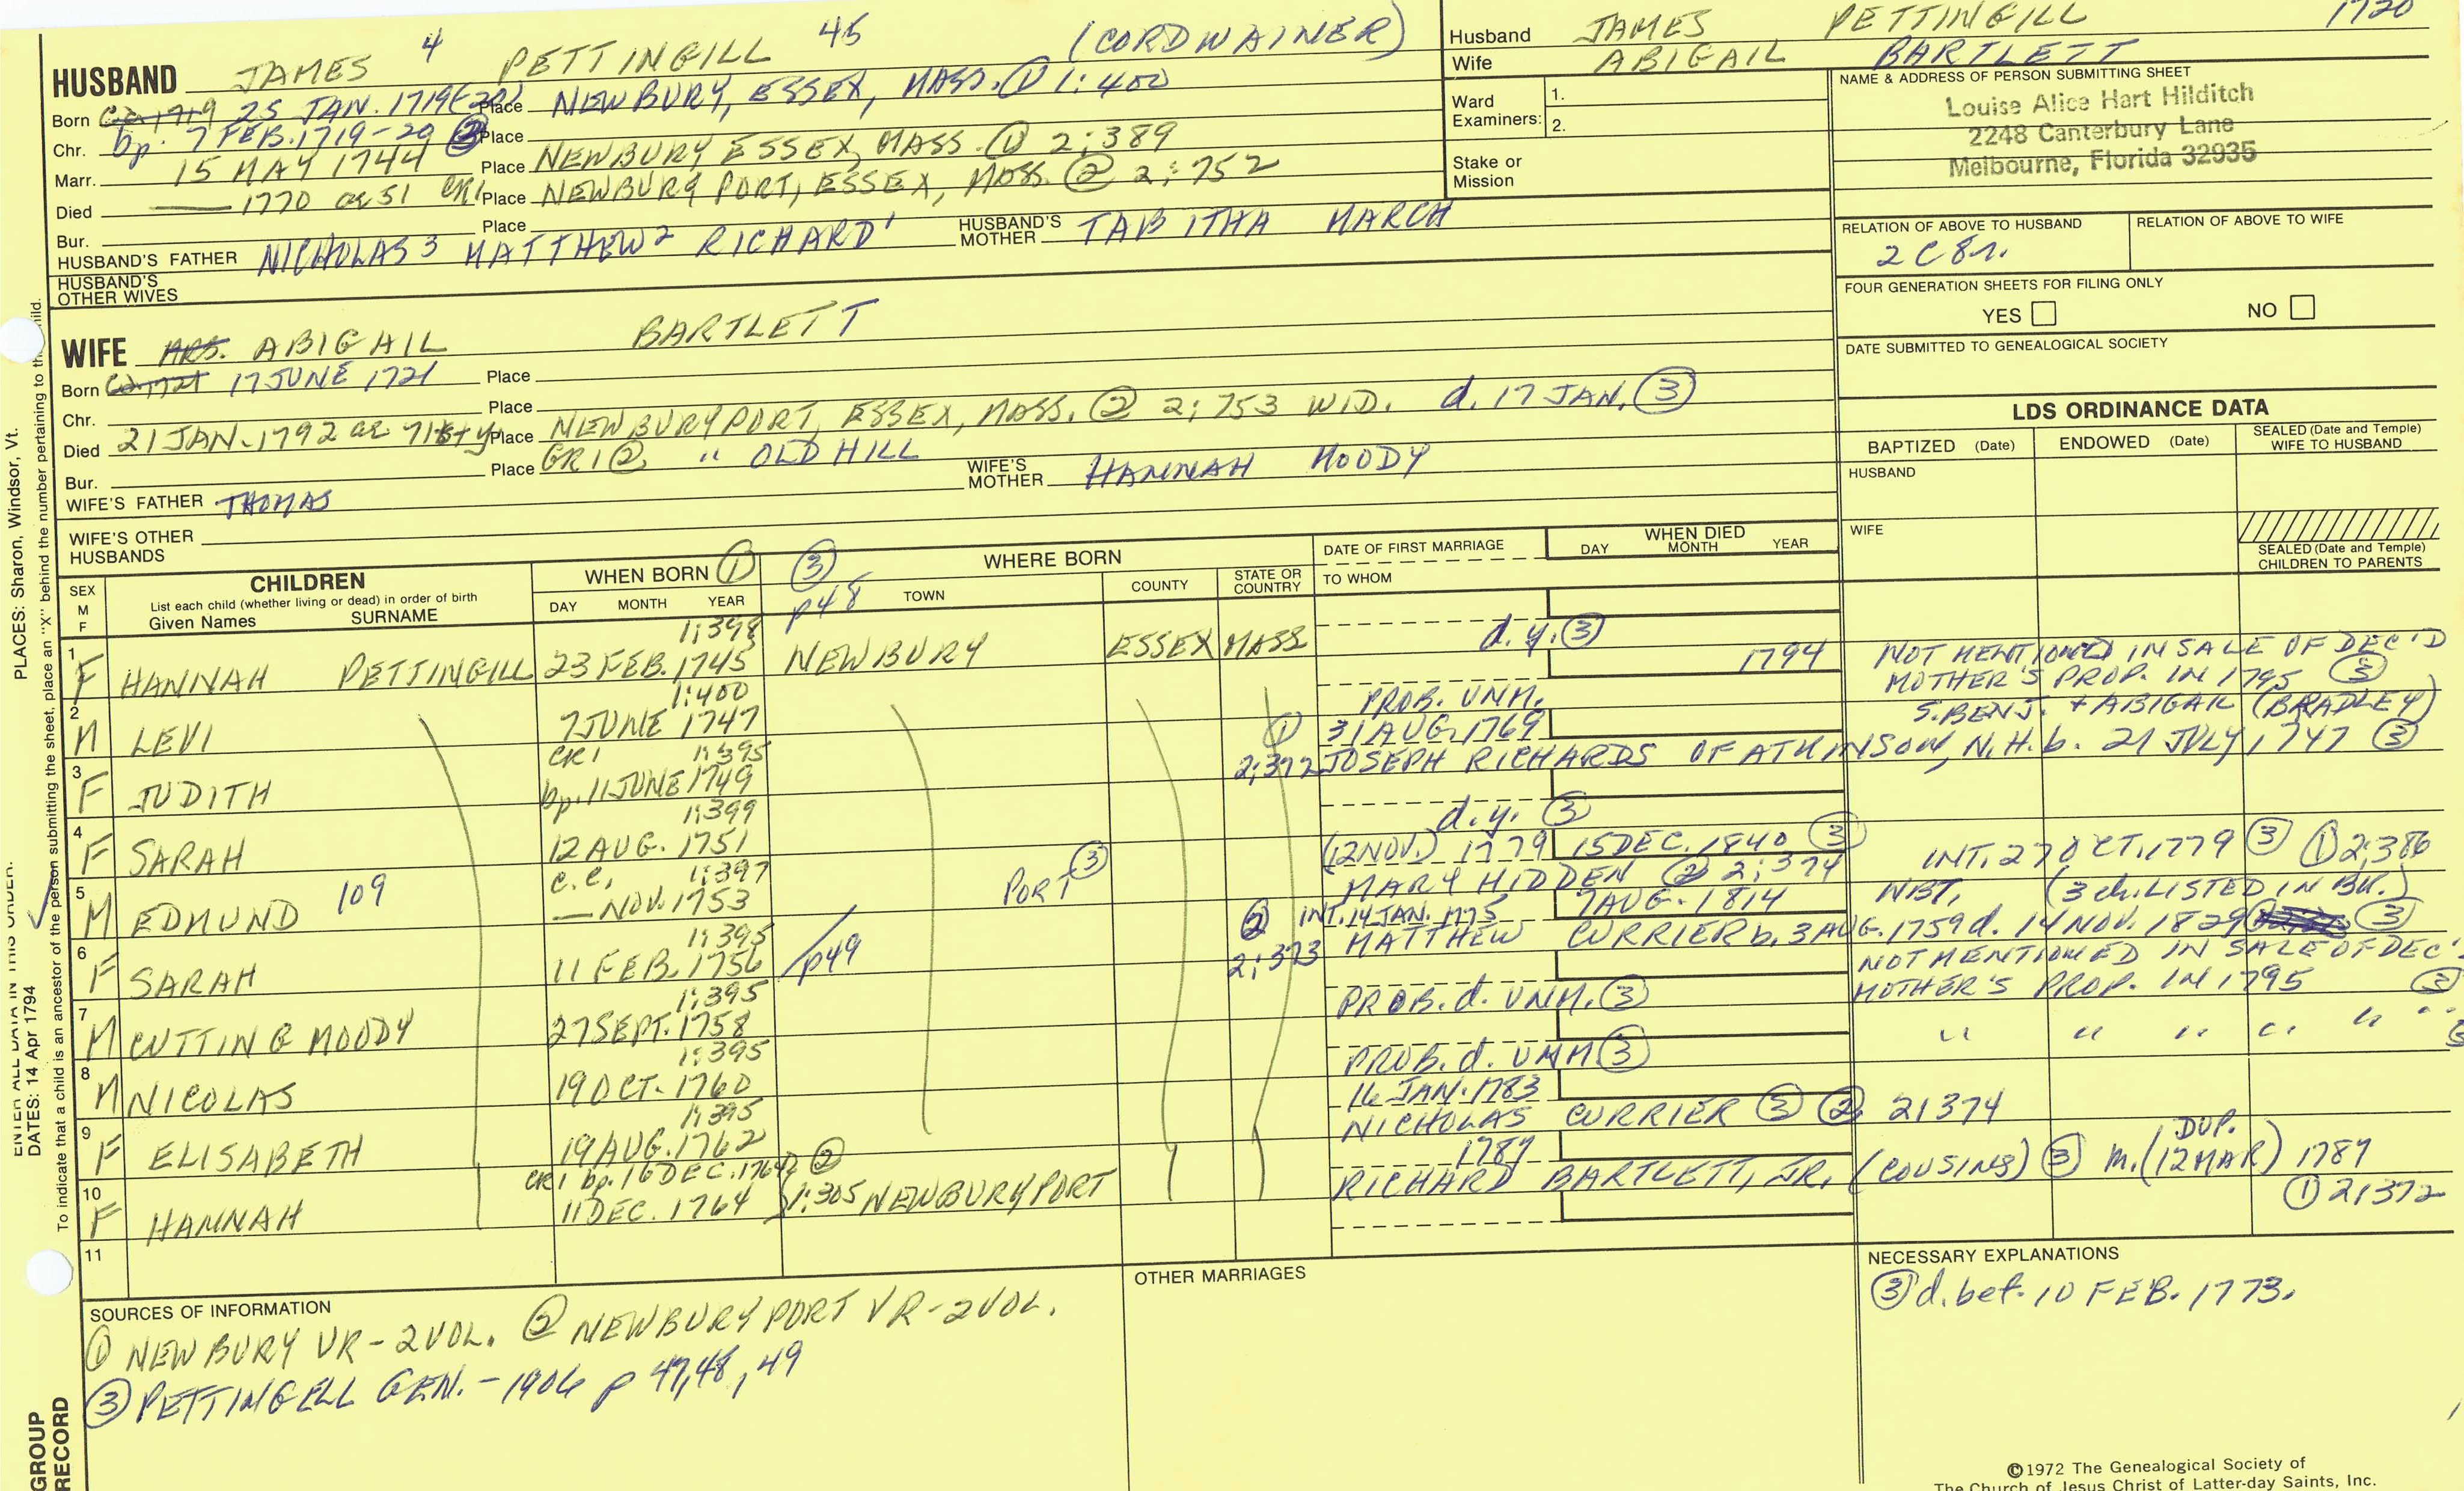 HUSBAND JAMES 4 PETTINGILL 45 (CORDWAINER)
Born Ca 1719 25 JAN. 1719(20) Place NEWBURY, ESSEX, MASS. ① 1:400
Chr. bp. 7 FEB. 1719-20 ② Place
Marr. 15 MAY 1744 Place NEWBURY ESSEX, MASS. ① 2:389
Died — 1770 ae 51 CR1 Place NEWBURY PORT, ESSEX, MASS. ② 2:752
Bur. Place
HUSBAND'S FATHER NICHOLAS 3 MATTHEW 2 RICHARD 1 HUSBAND'S MOTHER TABITHA MARCH
HUSBAND'S OTHER WIVES
WIFE MRS. ABIGAIL BARTLETT
Born Ca 1721 17 JUNE 1721 Place
Chr. Place
Died 21 JAN. 1792 ae 71 Place NEWBURYPORT, ESSEX, MASS. ② 2:753 WID. d. 17 JAN. ③
Bur. Place GR1 ② " OLD HILL
WIFE'S FATHER THOMAS WIFE'S MOTHER HANNAH MOODY
WIFE'S OTHER HUSBANDS
Husband JAMES PETTINGILL 1720
Wife ABIGAIL BARTLETT
Ward Examiners: 1.
2.
Stake or Mission
NAME & ADDRESS OF PERSON SUBMITTING SHEET
Louise Alice Hart Hilditch
2248 Canterbury Lane
Melbourne, Florida 32935
RELATION OF ABOVE TO HUSBAND RELATION OF ABOVE TO WIFE
2 C 8r.
FOUR GENERATION SHEETS FOR FILING ONLY
YES NO
DATE SUBMITTED TO GENEALOGICAL SOCIETY
LDS ORDINANCE DATA
BAPTIZED (Date) ENDOWED (Date) SEALED (Date and Temple) WIFE TO HUSBAND
HUSBAND
WIFE
SEALED (Date and Temple) CHILDREN TO PARENTS
SEX M F
CHILDREN
List each child (whether living or dead) in order of birth
Given Names SURNAME
WHEN BORN ①
DAY MONTH YEAR
③ p48 WHERE BORN
TOWN COUNTY STATE OR COUNTRY
DATE OF FIRST MARRIAGE
TO WHOM
WHEN DIED
DAY MONTH YEAR
1 F HANNAH PETTINGILL 1:398 23 FEB. 1745 NEWBURY ESSEX MASS d. y. ③
2 M LEVI 1:400 7 JUNE 1747 PROB. UNM. 1794 NOT MENTIONED IN SALE OF DEC'D
MOTHER'S PROP. IN 1795 ③
3 F JUDITH CR1 1:395 bp. 11 JUNE 1749 ① 2:372 31 AUG. 1769 S. BENJ. + ABIGAIL (BRADLEY)
JOSEPH RICHARDS OF ATKINSON, N.H. b. 21 JULY 1747 ③
4 F SARAH 1:399 12 AUG. 1751 d.y. ③
5 M EDMUND 109 C.C. 1:397 — NOV. 1753 PORT ③ (12 NOV.) 1779 15 DEC. 1840 ③ INT. 27 OCT. 1779 ③ ① 2:386
MARY HIDDEN ② 2:374 NBT. (3 ch. LISTED IN BK.)
6 F SARAH 1:395 11 FEB. 1756 p49 ② 2:373 INT. 14 JAN. 1775 7 AUG. 1814
MATTHEW CURRIER b. 3 AUG. 1759 d. 14 NOV. 1829 ③
7 M CUTTING MOODY 1:395 27 SEPT. 1758 PROB. d. UNM. ③ NOT MENTIONED IN SALE OF DEC'
MOTHER'S PROP. IN 1795 ③
8 M NICOLAS 1:395 19 OCT. 1760 PROB. d. UNM ③ " " " " " "
9 F ELISABETH 1:395 19 AUG. 1762 16 JAN. 1783
NICHOLAS CURRIER ③ ② 21374
10 F HANNAH CR1 bp. 16 DEC. 1764 ② 11 DEC. 1764 1:305 NEWBURYPORT 1787
RICHARD BARTLETT, JR. (COUSINS) ③ m. (12 MAR) DUP. 1787
① 21372
11
SOURCES OF INFORMATION
① NEWBURY VR - 2 VOL. ② NEWBURYPORT VR - 2 VOL.
③ PETTINGELL GEN. - 1906 p 47, 48, 49
OTHER MARRIAGES
NECESSARY EXPLANATIONS
③ d. bef. 10 FEB. 1773.
©1972 The Genealogical Society of
The Church of Jesus Christ of Latter-day Saints, Inc.
ENTER ALL DATA IN THIS ORDER:
DATES: 14 Apr 1794
PLACES: Sharon, Windsor, Vt.
To indicate that a child is an ancestor of the person submitting the sheet, place an "X" behind the number pertaining to th child.
GROUP
RECORD